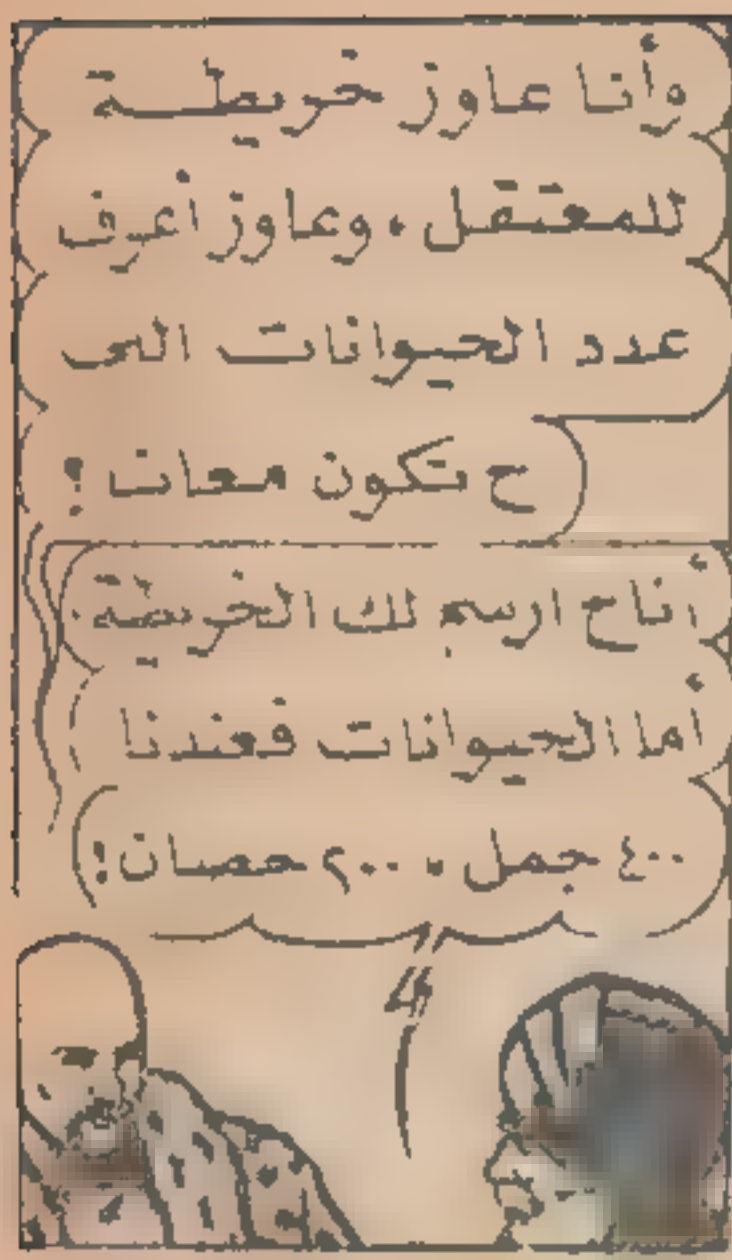 وأنا عاوز خريطة
للمعتقل، وعاوز أعرف
عدد الحيوانات اللى
ح تكون معانا !
أنا ح ارسم لك الخريطة
أما الحيوانات فعندنا
٤٠٠ جمل، ٢٠٠ حصان!